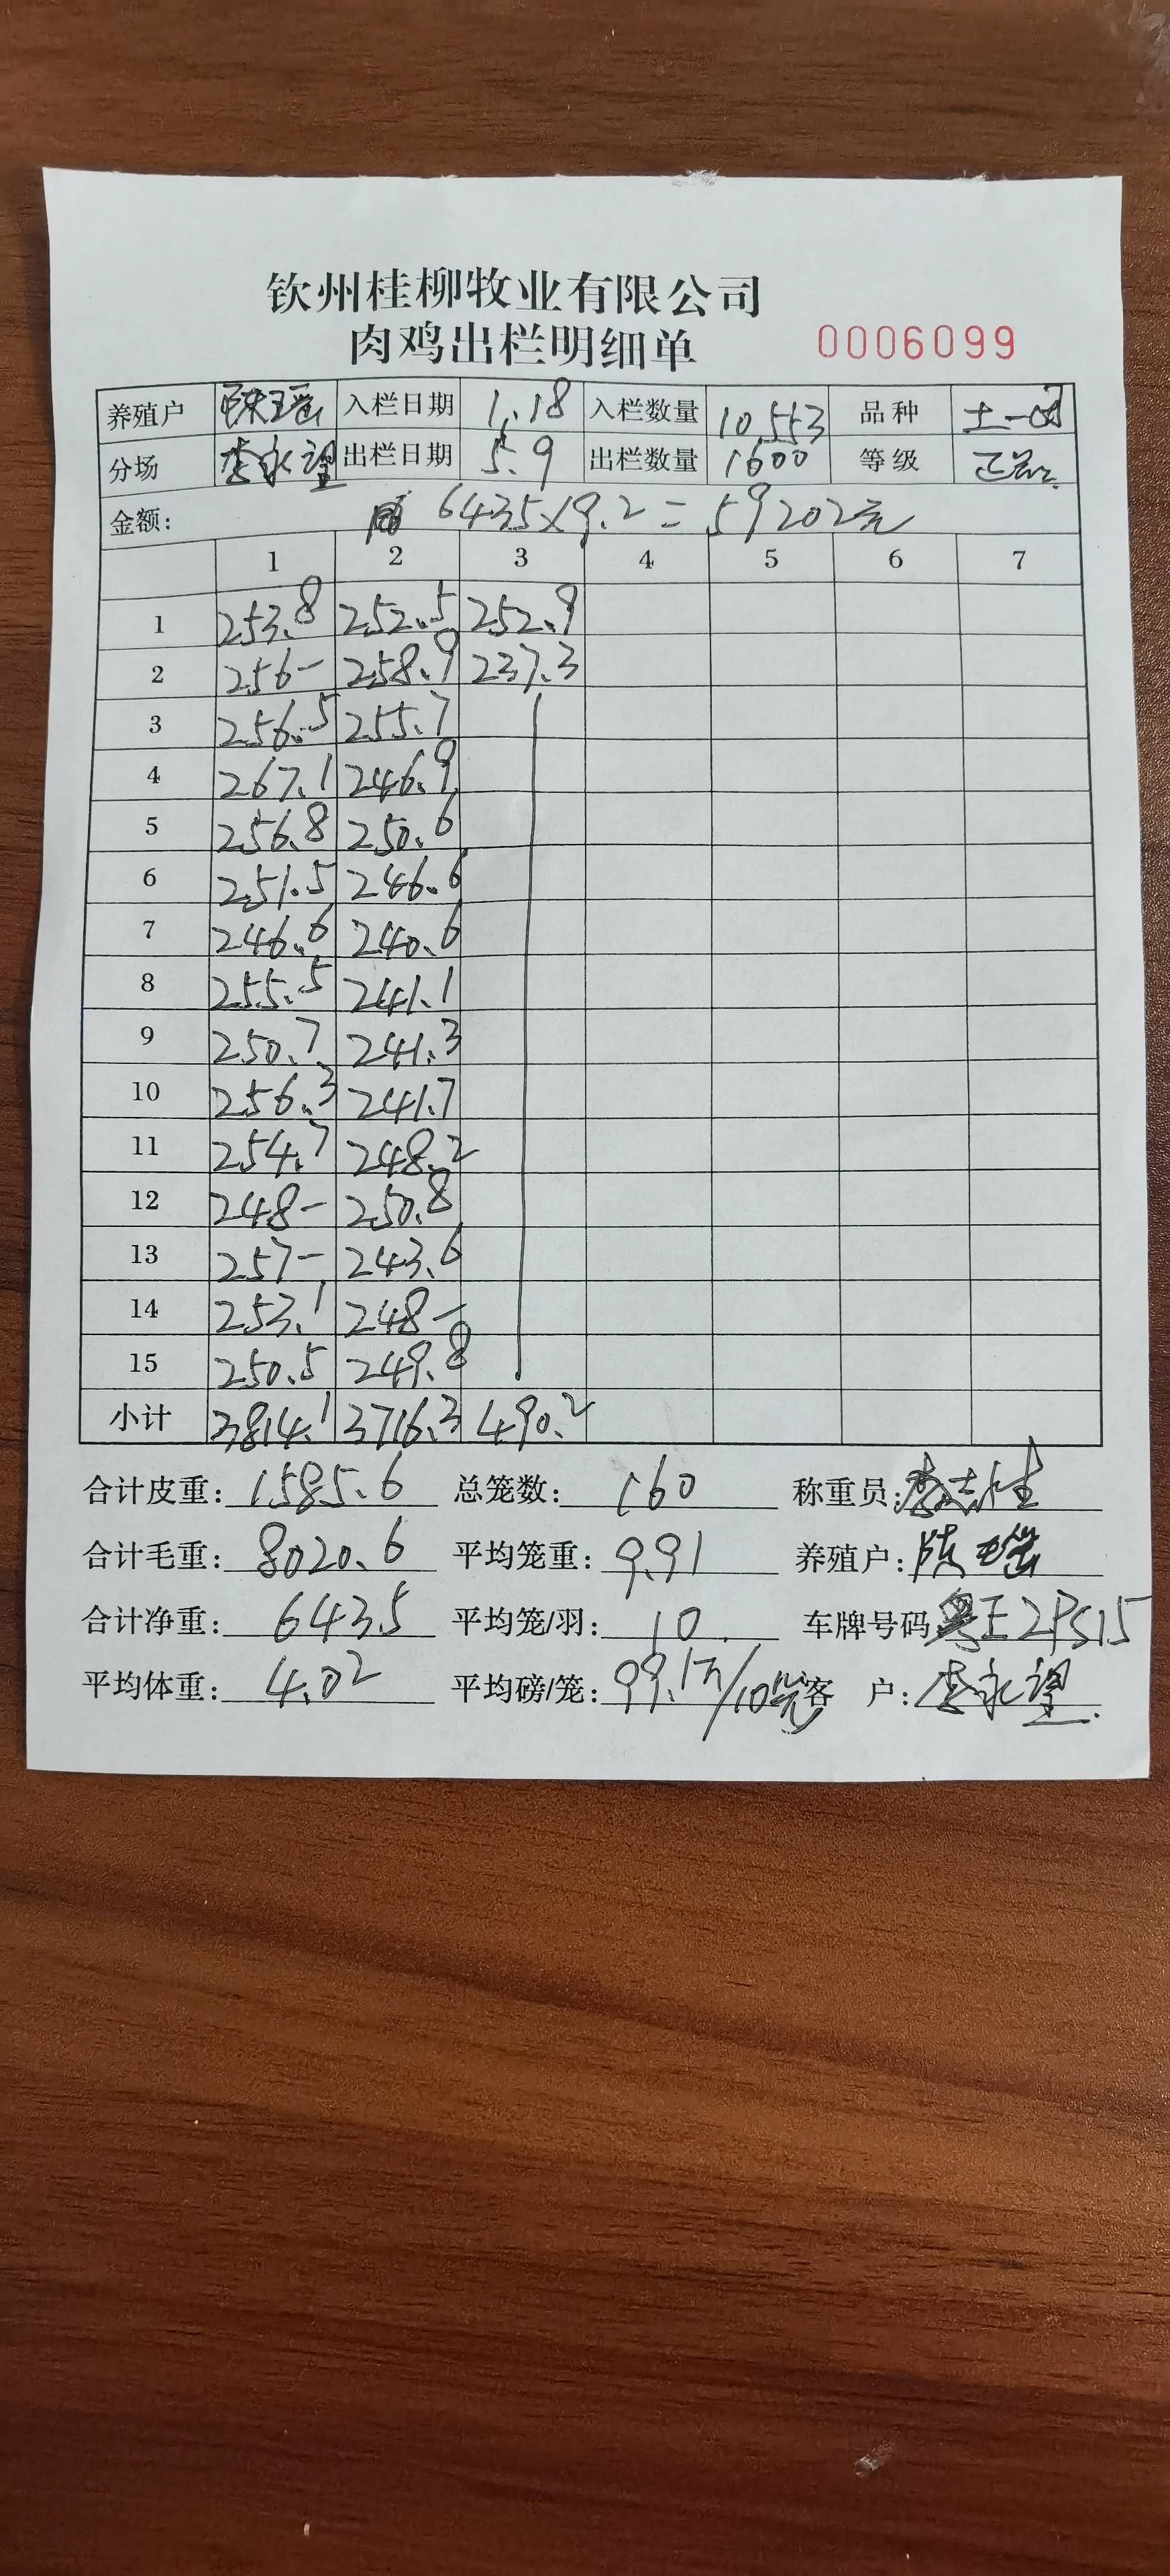 钦州桂柳牧业有限公司
肉鸡出栏明细单 0006099
养殖户 陈瑶 入栏日期 1.18 入栏数量 10553 品种 土一
分场 李永望 出栏日期 5.9 出栏数量 1600 等级 正品
金额: 6435×9.2=59202元
1 2 3 4 5 6 7
1 253.8 252.5 252.9
2 256- 258.9 237.3
3 256.5 255.7
4 267.1 246.9
5 256.8 250.6
6 251.5 246.6
7 246.6 240.6
8 255.5 241.1
9 250.7 241.3
10 256.3 241.7
11 254.7 248.2
12 248- 250.8
13 257- 243.6
14 253.1 248-
15 250.5 249.8
小计 3814.1 3716.3 490.2
合计皮重: 1585.6 总笼数: 160 称重员: 李志
合计毛重: 8020.6 平均笼重: 9.91 养殖户: 陈瑶
合计净重: 6435 平均笼/羽: 10 车牌号码
平均体重: 4.02 平均磅/笼: 99.1斤/10 客户: 李永望